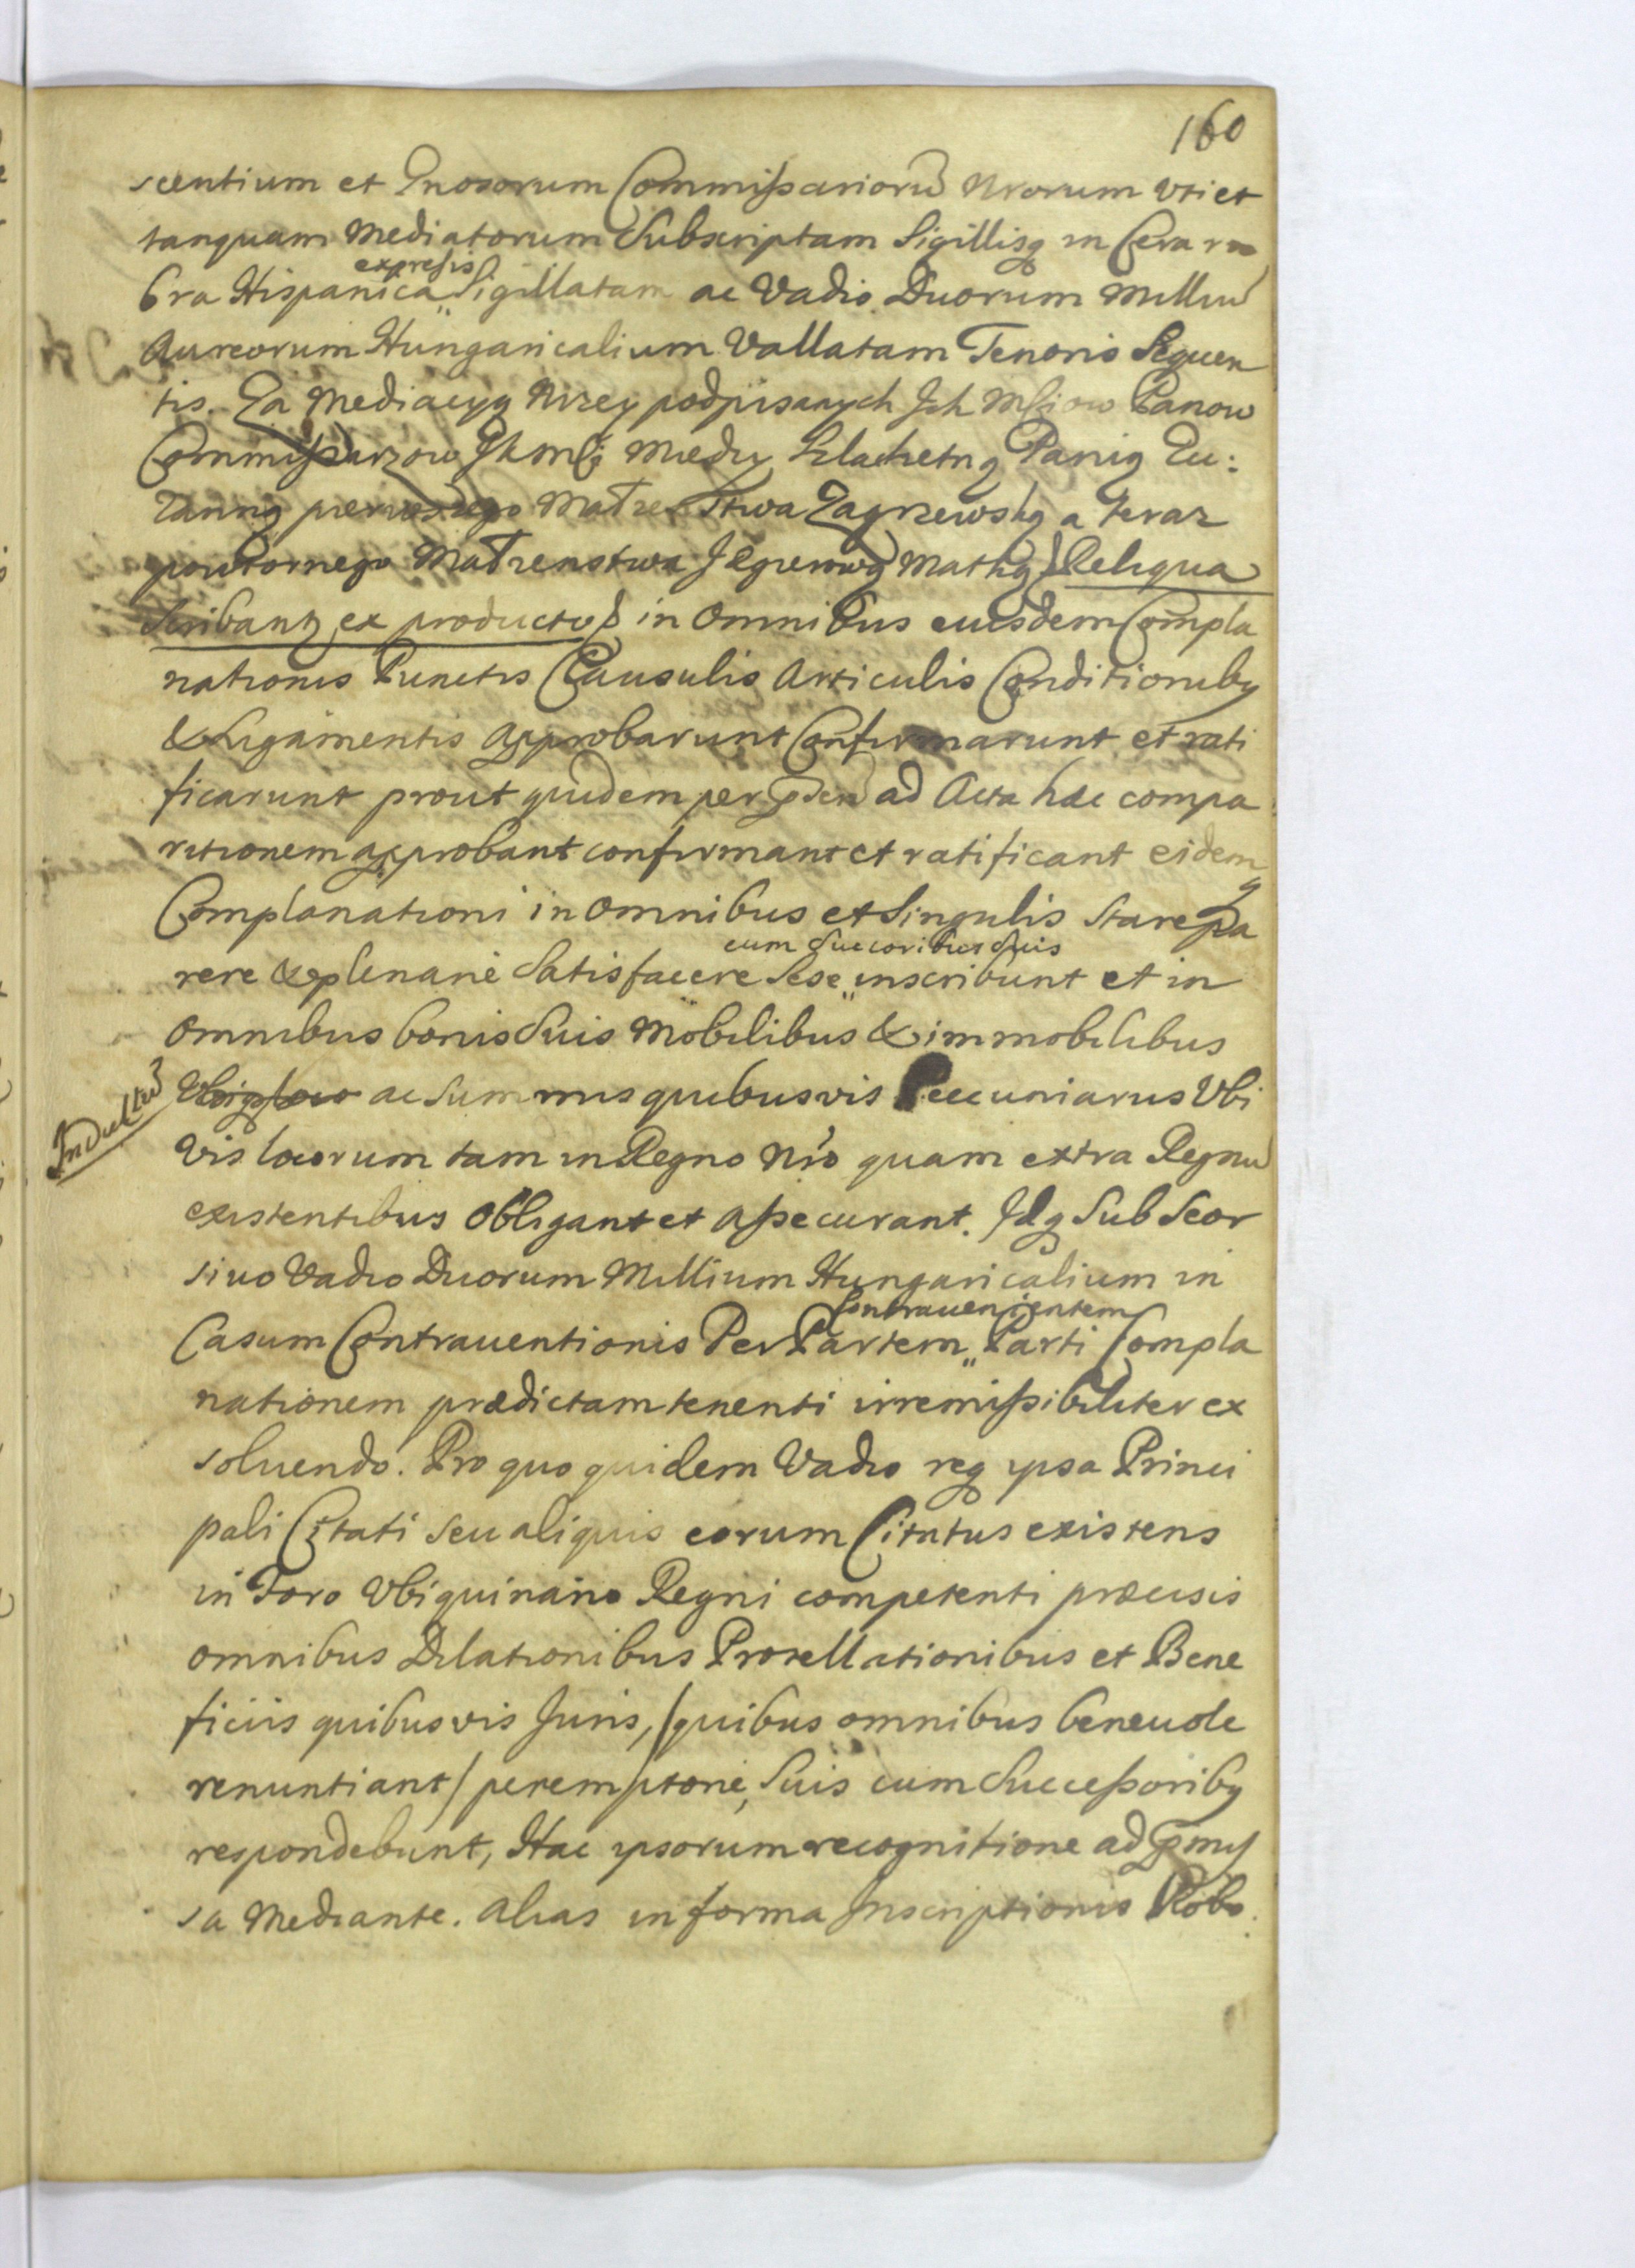 160
scentium et Gnosorum Commissarioru Nrorum uti et
tanquam Mediatorum Subscriptam Sigillisq in Cera ru
bra Hispanica expressis Sigillatam ac Vadio Duorum Milliu
Aureorum Hungaricalium Vallatam Tenoris Sequen
tis. Za Mediacyą Nizey podpisanych Ich Mściow Panow
Commissarzow JKMśi Miedzy Szlachetną Panią Zu:
zanną pierwszego Małzenstwa Zagrzewską a teraz
powtornego Małzenstwa Mathą / Reliqua
Scribantz ex producto / in Omnibus eiusdem Compla
nationis Punctis Clausulis Articulis Conditionibq
& Ligamentis Approbarunt Confirmarunt et rati
ficarunt prout quidem per ad Acta hac compa
ritionem approbant confirmant et ratificant eidemq
Complanationi in Omnibus et Singulis Stare pa
rere & plenarie Satisfacere Sese cum Succoribus Suis inscribunt et in
Omnibus bonis Suis Mobilibus & immobilibus
Indultu
ac Summis quibusvis Pecuniariis Ubi
vis locorum tam in Regno Nro quam extra Regnu
existentibus Obligant et Assecurant. Idq Sub Seor
sivo Vadio Duorum Millium Hungaricalium in
Casum Contrauentionis Per Partem Contrauenientem Parti Compla
nationem prædictam tenenti irremissibiliter ex
soluendo. Pro quo quidem Vadio req ipsa Princi
pali Citati Seu aliquis eorum Citatus existens
in Foro Ubiquinario Regni competenti præcisis
Omnibus Dilationibus Procellationibus et Bene
ficiis quibusvis Juris, /quibus omnibus beneuole
renuntiant/ peremptorie, Suis cum Successoribq
respondebunt, Hac ipsorum recognitione ad pmis
sa Mediante. Alias in forma Inscriptionis Robo